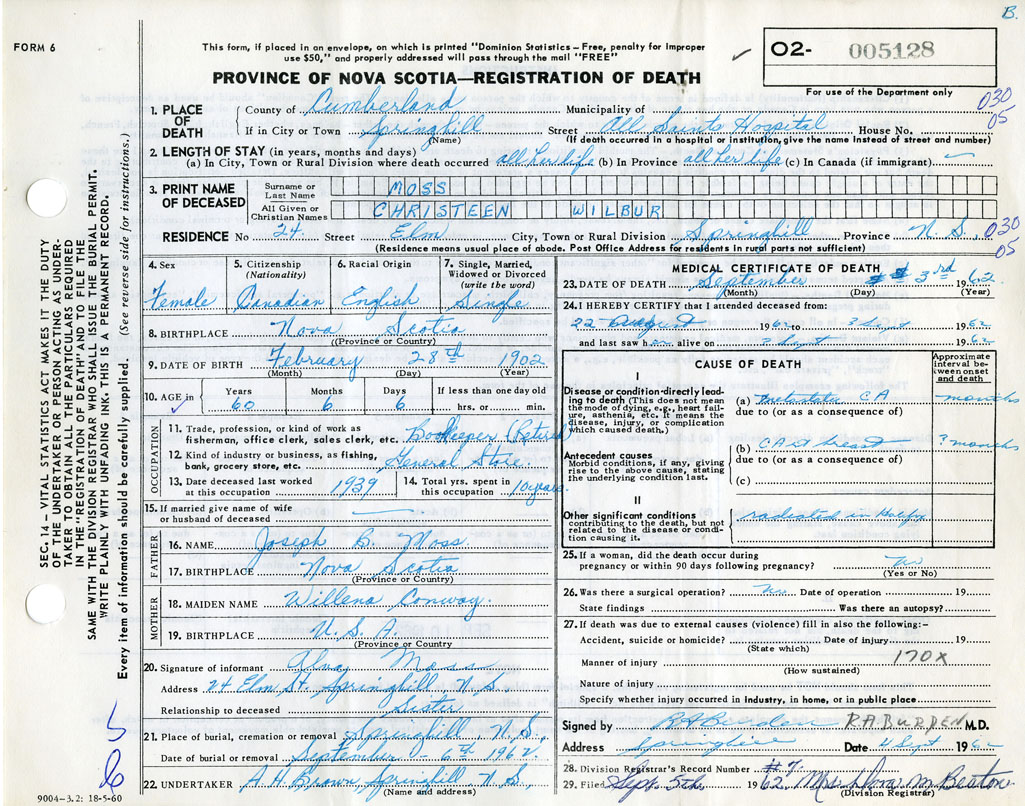 B.
FORM 6
This form, if placed in an envelope, on which is printed "Dominion Statistics – Free, penalty for improper
use $50," and properly addressed will pass through the mail "FREE"
PROVINCE OF NOVA SCOTIA—REGISTRATION OF DEATH
O2- 005128
For use of the Department only
030
05
SEC. 14 – VITAL STATISTICS ACT MAKES IT THE DUTY
OF THE UNDERTAKER OR PERSON ACTING AS UNDER-
TAKER TO OBTAIN ALL THE PARTICULARS REQUIRED
IN THE "REGISTRATION OF DEATH" AND TO FILE THE
SAME WITH THE DIVISION REGISTRAR WHO SHALL ISSUE THE BURIAL PERMIT.
WRITE PLAINLY WITH UNFADING INK. THIS IS A PERMANENT RECORD.
Every item of information should be carefully supplied. (See reverse side for instructions.)
1. PLACE OF DEATH
County of Cumberland Municipality of
If in City or Town Springhill Street All Saints Hospital House No.
(Name) (If death occurred in a hospital or institution, give the name instead of street and number)
2. LENGTH OF STAY (in years, months and days)
(a) In City, Town or Rural Division where death occurred all her life (b) In Province all her life (c) In Canada (if immigrant) —
3. PRINT NAME OF DECEASED
Surname or Last Name MOSS
All Given or Christian Names CHRISTEEN WILBUR
RESIDENCE No 24 Street Elm City, Town or Rural Division Springhill Province N. S.
030
05
(Residence means usual place of abode. Post Office Address for residents in rural parts not sufficient)
4. Sex
Female
5. Citizenship (Nationality)
Canadian
6. Racial Origin
English
7. Single, Married, Widowed or Divorced (write the word)
Single
8. BIRTHPLACE Nova Scotia
(Province or Country)
9. DATE OF BIRTH February 28th 1902
(Month) (Day) (Year)
10. AGE in Years 60 Months 6 Days 6 If less than one day old hrs. or min.
OCCUPATION
11. Trade, profession, or kind of work as
fisherman, office clerk, sales clerk, etc. Bookeeper (Retired
12. Kind of industry or business, as fishing,
bank, grocery store, etc. General Store.
13. Date deceased last worked
at this occupation 1939
14. Total yrs. spent in
this occupation 10 years
15. If married give name of wife
or husband of deceased —
FATHER
16. NAME Joseph B. Moss
17. BIRTHPLACE Nova Scotia
(Province or Country)
MOTHER
18. MAIDEN NAME Willena Conway.
19. BIRTHPLACE U.S.A.
(Province or Country)
20. Signature of informant Alva Moss
Address 24 Elm St. Springhill N.S.
Relationship to deceased Sister
21. Place of burial, cremation or removal Springhill N.S.
Date of burial or removal September 6th 1962
22. UNDERTAKER A.H. Brown Springhill N.S.
(Name and address)
9004–3.2: 18-5-60
MEDICAL CERTIFICATE OF DEATH
23. DATE OF DEATH September 3rd 1962
(Month) (Day) (Year)
24. I HEREBY CERTIFY that I attended deceased from:
22 August 1962 to 3 Sept 1962
and last saw her alive on 3 Sept 1962
CAUSE OF DEATH
Approximate interval between onset and death
I
Disease or condition directly lead-
ing to death (This does not mean
the mode of dying, e.g., heart fail-
ure, asthenia, etc. It means the
disease, injury, or complication
which caused death.)
(a) Metastatic CA months
due to (or as a consequence of)
Antecedent causes
Morbid conditions, if any, giving
rise to the above cause, stating
the underlying condition last.
(b) CA ? months
due to (or as a consequence of)
(c)
II
Other significant conditions
contributing to the death, but not
related to the disease or condi-
tion causing it.
radiated in Halifax
25. If a woman, did the death occur during
pregnancy or within 90 days following pregnancy? no
(Yes or No)
26. Was there a surgical operation? No Date of operation 19
State findings Was there an autopsy?
27. If death was due to external causes (violence) fill in also the following:–
Accident, suicide or homicide? Date of injury 19
(State which)
Manner of injury 170X
(How sustained)
Nature of injury
Specify whether injury occurred in industry, in home, or in public place
Signed by R A Burden R.A. BURDEN M.D.
Address Springhill Date 4 Sept 1962
28. Division Registrar's Record Number #7.
29. Filed Sept. 5th 1962 Mrs Dora M. Beaton
(Division Registrar)